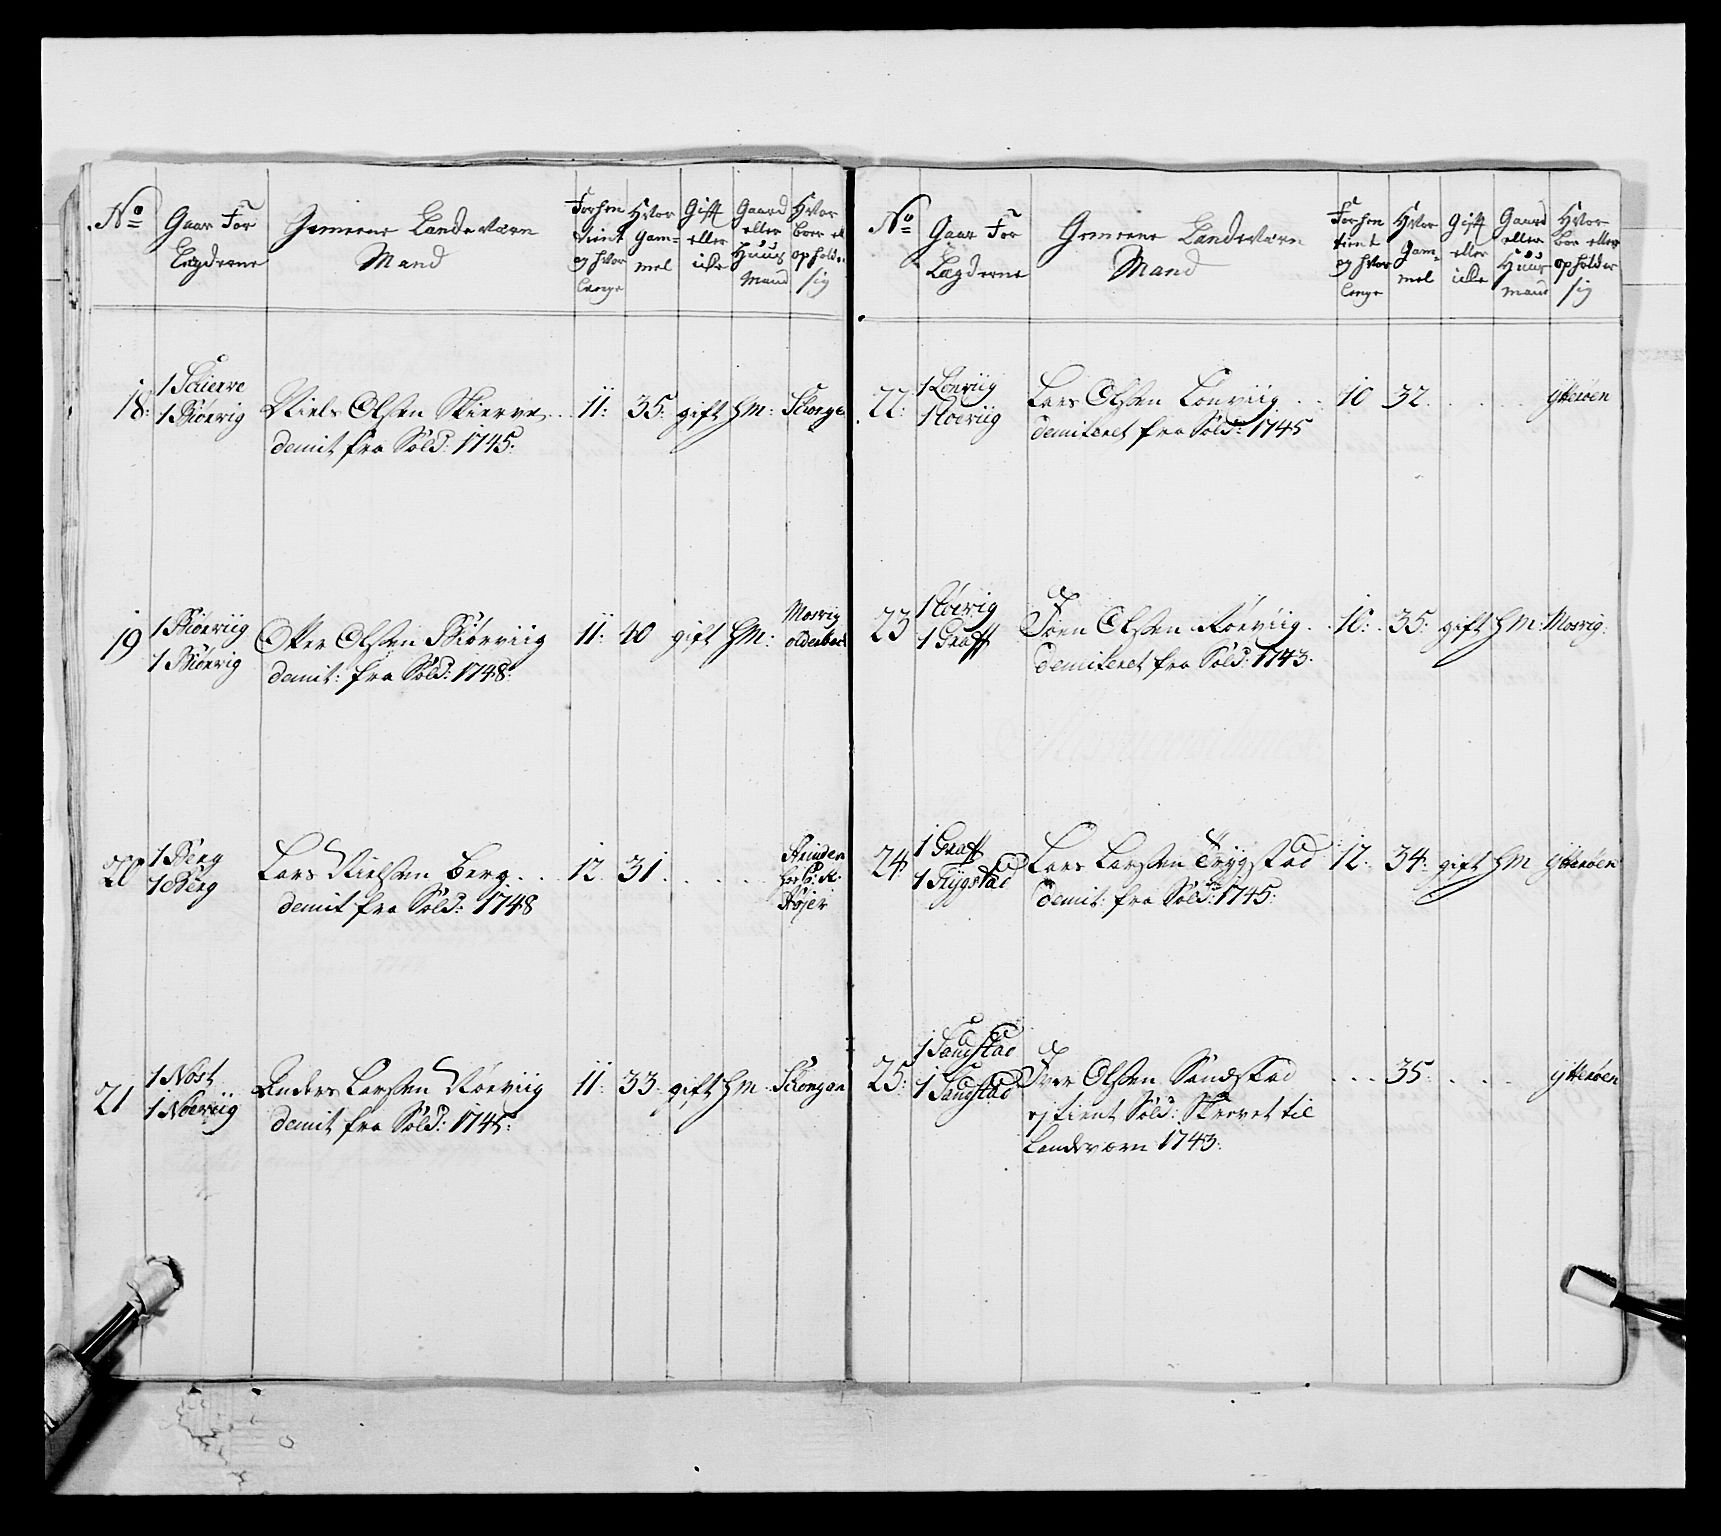 No
Gaar For
Lægderne
Gemeene Landeværn
Mand
Forhen
tient
og hvor
lenge
Hvor
Gam-
mel
Gift
eller
icke
Gaard
eller
Huus
Mand
Hvor
boer el
opholder
sig
18:
1 Schierve
1 Biørvig
Niels Olsen Skierve
demit fra Sold: 1745:
11:
35:
gift
HM:
19
1 Biørviig
1 Biørvig
Olsen Biørviig
demit: fra Sold: 1748:
11:
40
gift
HM:
Mosvig
20
1 Berg
1 Berg
Lars Nielsen Berg
demit fra Sold: 1748
12
31
Strinden
21
1 Nøst
1 Nørviig
Anders Larsen Nørviig
demit fra Sold: 1745:
11:
33
gift
HM
No
Gaar For
Lægderne
Gemeene Landeværn
Mand
Forhen
tient
og hvor
lenge
Hvor
Gam-
mel
Gift
eller
icke
Gaard
eller
Huus
mand
Hvor
boe eller
opholder
sig
22:
1 Lonviig
Lars Olsen Lonviig
demiteret fra Sold: 1745
10
32
ytterøen
23
1 Graff
Olsen
demiteret fra Sold: 1743
10:
35:
gift
HM:
Mosvig:
24
1 Graff
1 Trygstad
Lars Larsen Trygstad
demit: fra Sold: 1745:
12
34:
gift
HM
ytterøen
25:
1 Sandstad
1 Sandstad
Iver Olsen Sandstad
ej tient Sold: Skrevet til
Landeværn 1743:
35
ytterøen